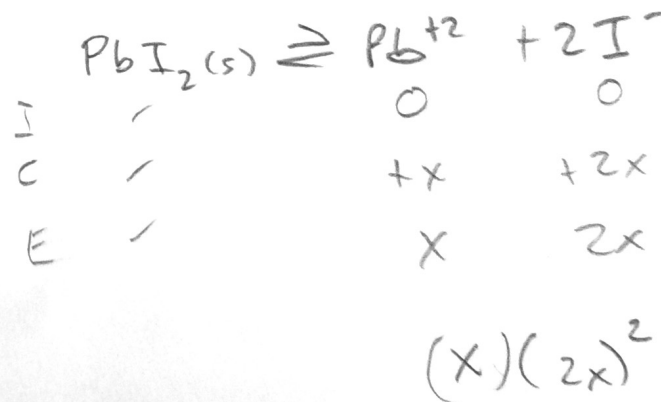 PbI₂(s) ⇌ Pb⁺² + 2I⁻
I - 0 0
C - +x +2x
E - x 2x
(x)(2x)²